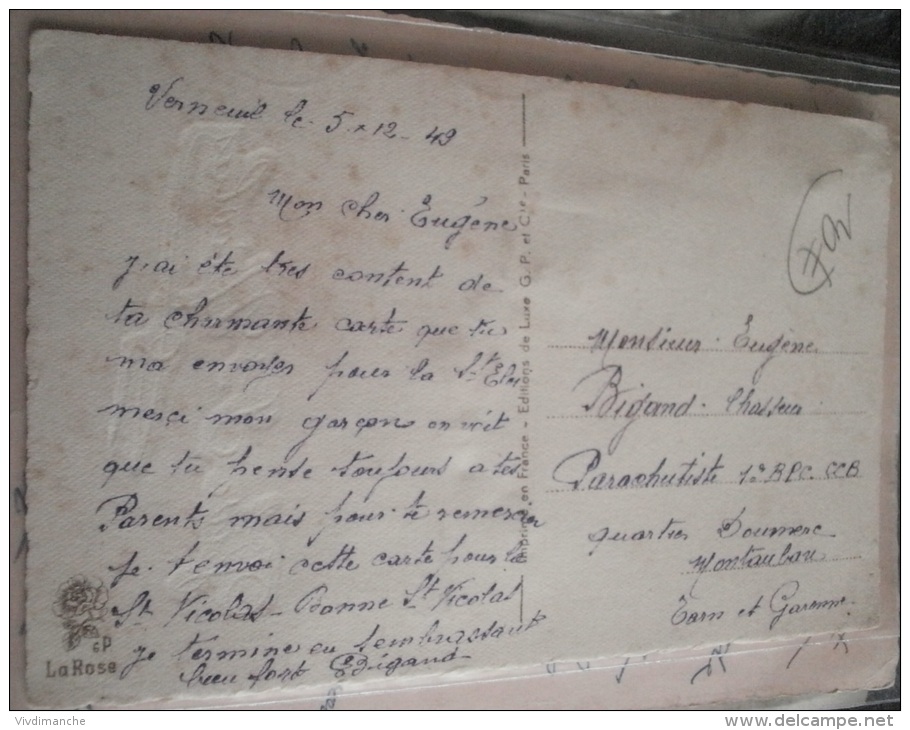 Verneuil le 5-12-49
Mon cher Eugène
J'ai été tres content de
ta charmante carte que tu
ma envoyer pour la St Eloi
merçi mon garçon on voit
que tu pense toujours a tes
Parents mais pour te remercier
je t'envoi cette carte pour la
St Nicolas - Bonne St Nicolas
je termine en t'embrassant
bien fort Bigand
Imprimé en France - Editions de Luxe G. P. et Cie - Paris
Monsieur Eugène
Bigand Chasseur
Parachutiste 1er BPC. CCB
quartier Doumerc
Montauban
Tarn et Garonne
GP
La Rose
Vivdimanche
www.delcampe.net